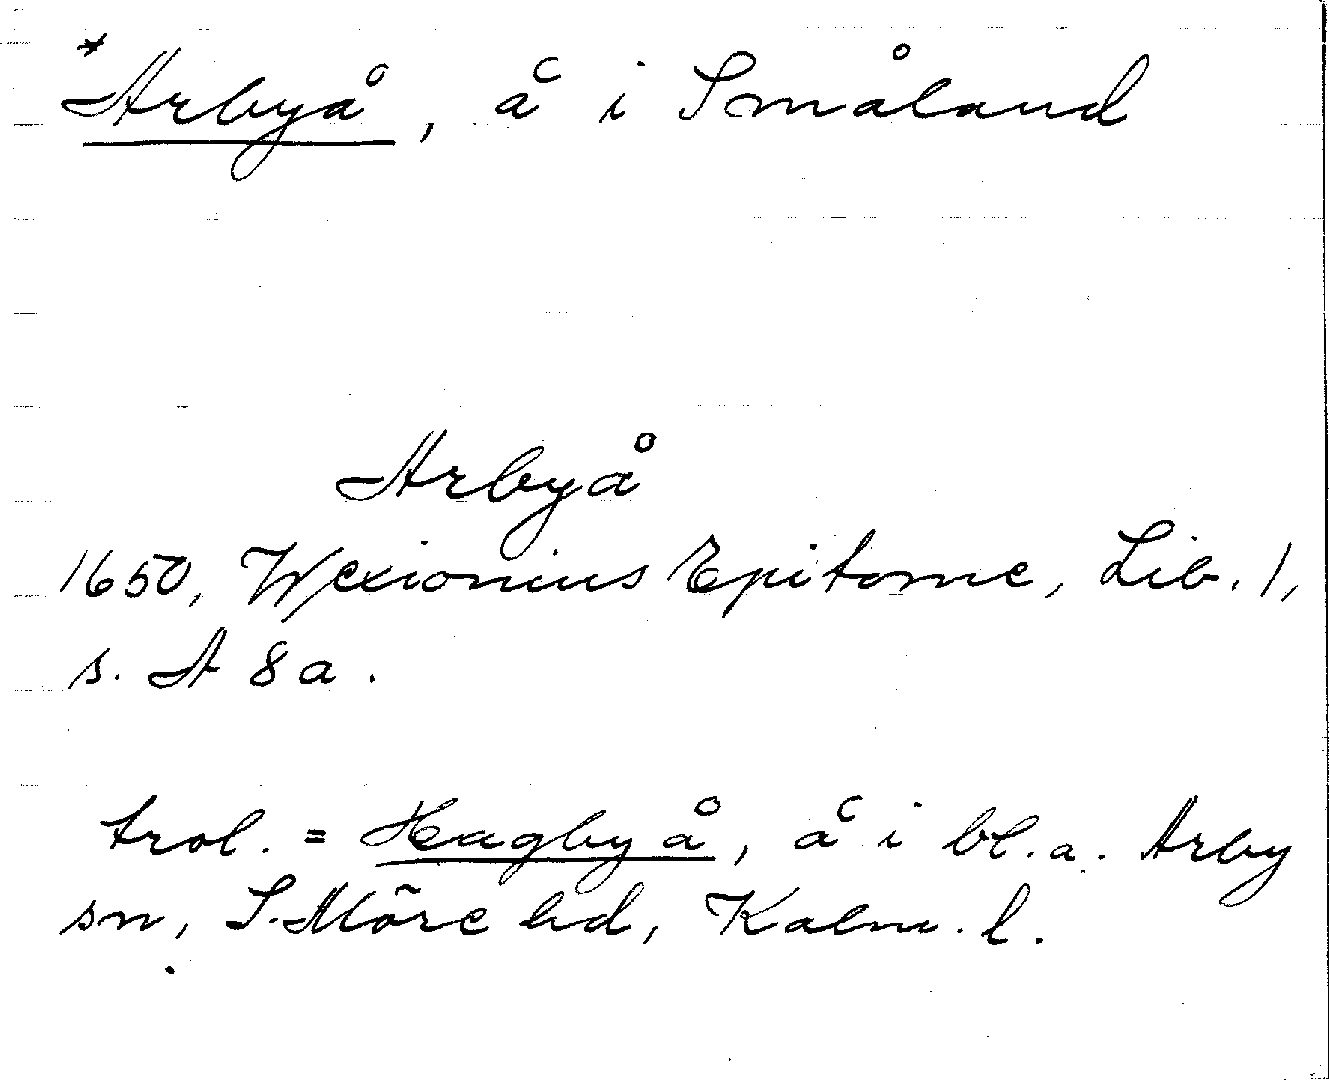 *Arbyå, å i Småland
Arbyå
1650, Wexionius Epitome, Lib. 1,
s. A 8a.
trol. = Hagbyå, å i bl.a. Arby
sn, S. Möre hd, Kalm. l.